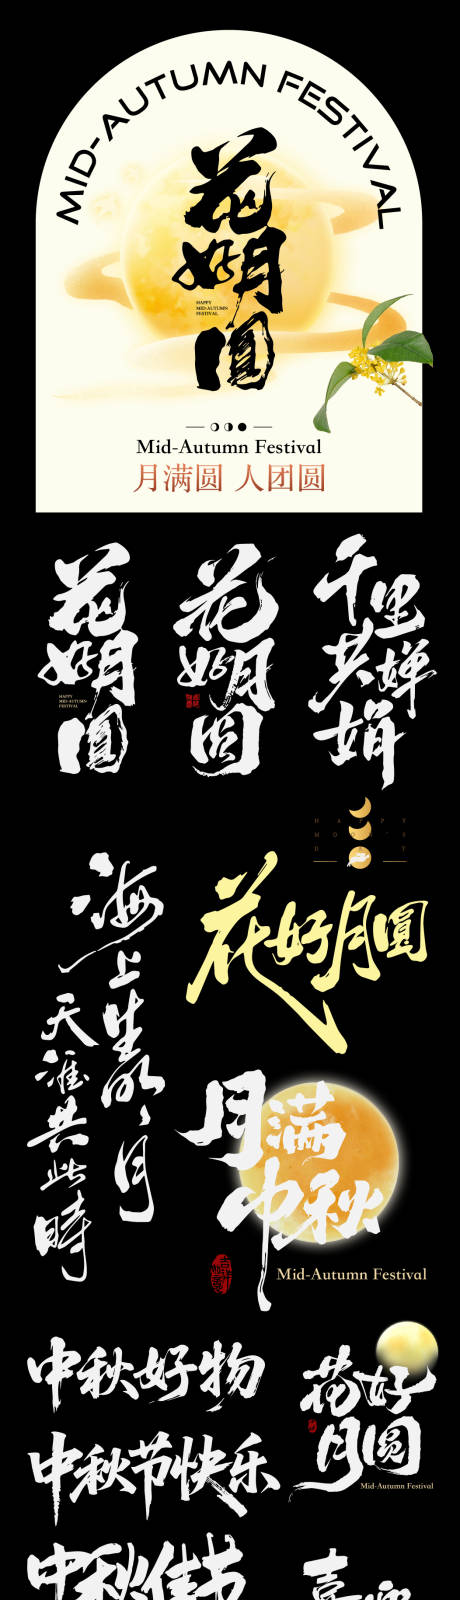 MID-AUTUMN FESTIVAL
花好月圓
HAPPY
MID-AUTUMN
FESTIVAL
Mid-Autumn Festival
月满圆 人团圆
花好月圓
HAPPY
MID-AUTUMN
FESTIVAL
花好月圆
千里共婵娟
HAPPY
海上生明月
天涯共此時
花好月圓
月满中秋
Mid-Autumn Festival
中秋好物
花好月圆
Mid-Autumn Festival
中秋节快乐
中秋佳节